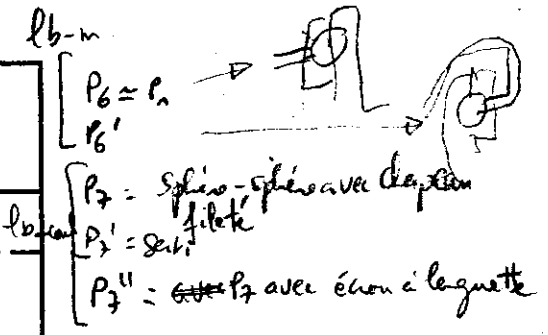 lb-m
P6 ≃ P1
P6'
P7 = sphéro-sphéro avec chapeau
fileté
P7' = serti
P7'' = P7 avec écrou à languette